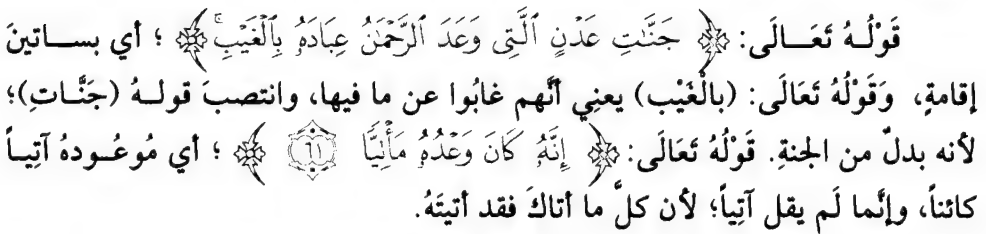 قَوْلُهُ تَعَالَى: ﴿ جَنَّٰتِ عَدْنٍ ٱلَّتِى وَعَدَ ٱلرَّحْمَٰنُ عِبَادَهُۥ بِٱلْغَيْبِۚ ﴾ ؛ أي بساتينَ
إقامةٍ، وَقَوْلُهُ تَعَالَى: (بالْغَيْب) يعنِي أنَّهم غابُوا عن ما فيها، وانتصبَ قولهُ (جَنَّاتِ)؛
لأنه بدلٌ من الجنةِ. قَوْلُهُ تَعَالَى: ﴿ إِنَّهُۥ كَانَ وَعْدُهُۥ مَأْتِيًّا ٦١ ﴾ ؛ أي مُوعُودهُ آتِياً
كائناً، وإنَّما لَم يقل آتِياً؛ لأن كلَّ ما أتاكَ فقد أتيتَهُ.